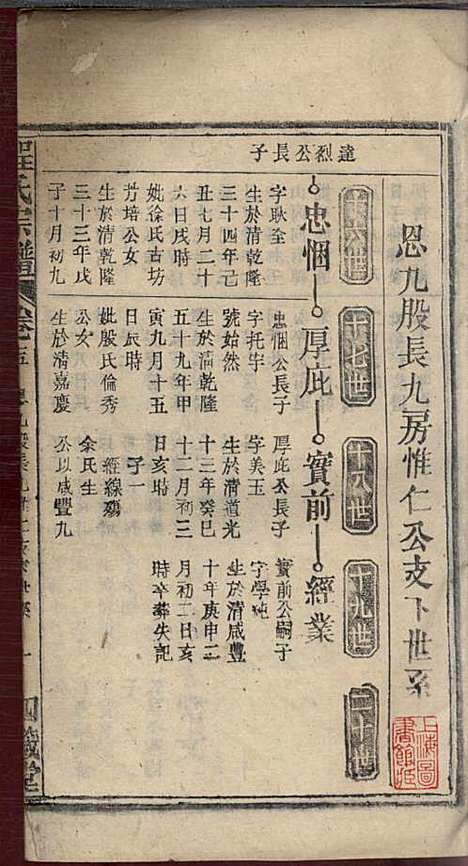 恩九股長九房惟仁公支下世系
十六世
十七世
十八世
十九世
二十世
達烈公長子
忠悃
厚庇
實前
經業
字耿全
生於清乾隆
三十四年己
丑七月二十
六日戌時
妣徐氏古坊
芳培公女
生於清乾隆
三十三年戊
子十月初九
忠悃公長子
字托宇
號始然
生於清乾隆
五十九年甲
寅九月十五
日辰時
妣殷氏倫秀
公女
生於清嘉慶
厚庇公長子
字美玉
生於清道光
十三年癸巳
十二月初三
日亥時
子一
經線殤
余氏生
公以咸豐九
實前公嗣子
字學純
生於清咸豐
十年庚申二
月初二日亥
時卒葬失記
氏宗譜
卷五
上海圖
書館藏